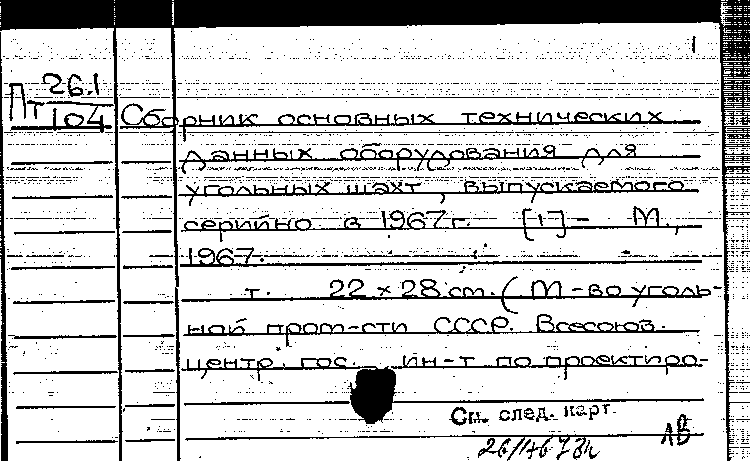 1
Пт 26.1
104 Сборник основных технических
данных оборудования для
угольных шахт, выпускаемого
серийно в 1967 г. [1] - М.,
1967.
т. 22 × 28 см. (М-во уголь-
ной пром-сти СССР. Всесоюз.
центр. гос. ин-т по проектиро-
См. след. карт.